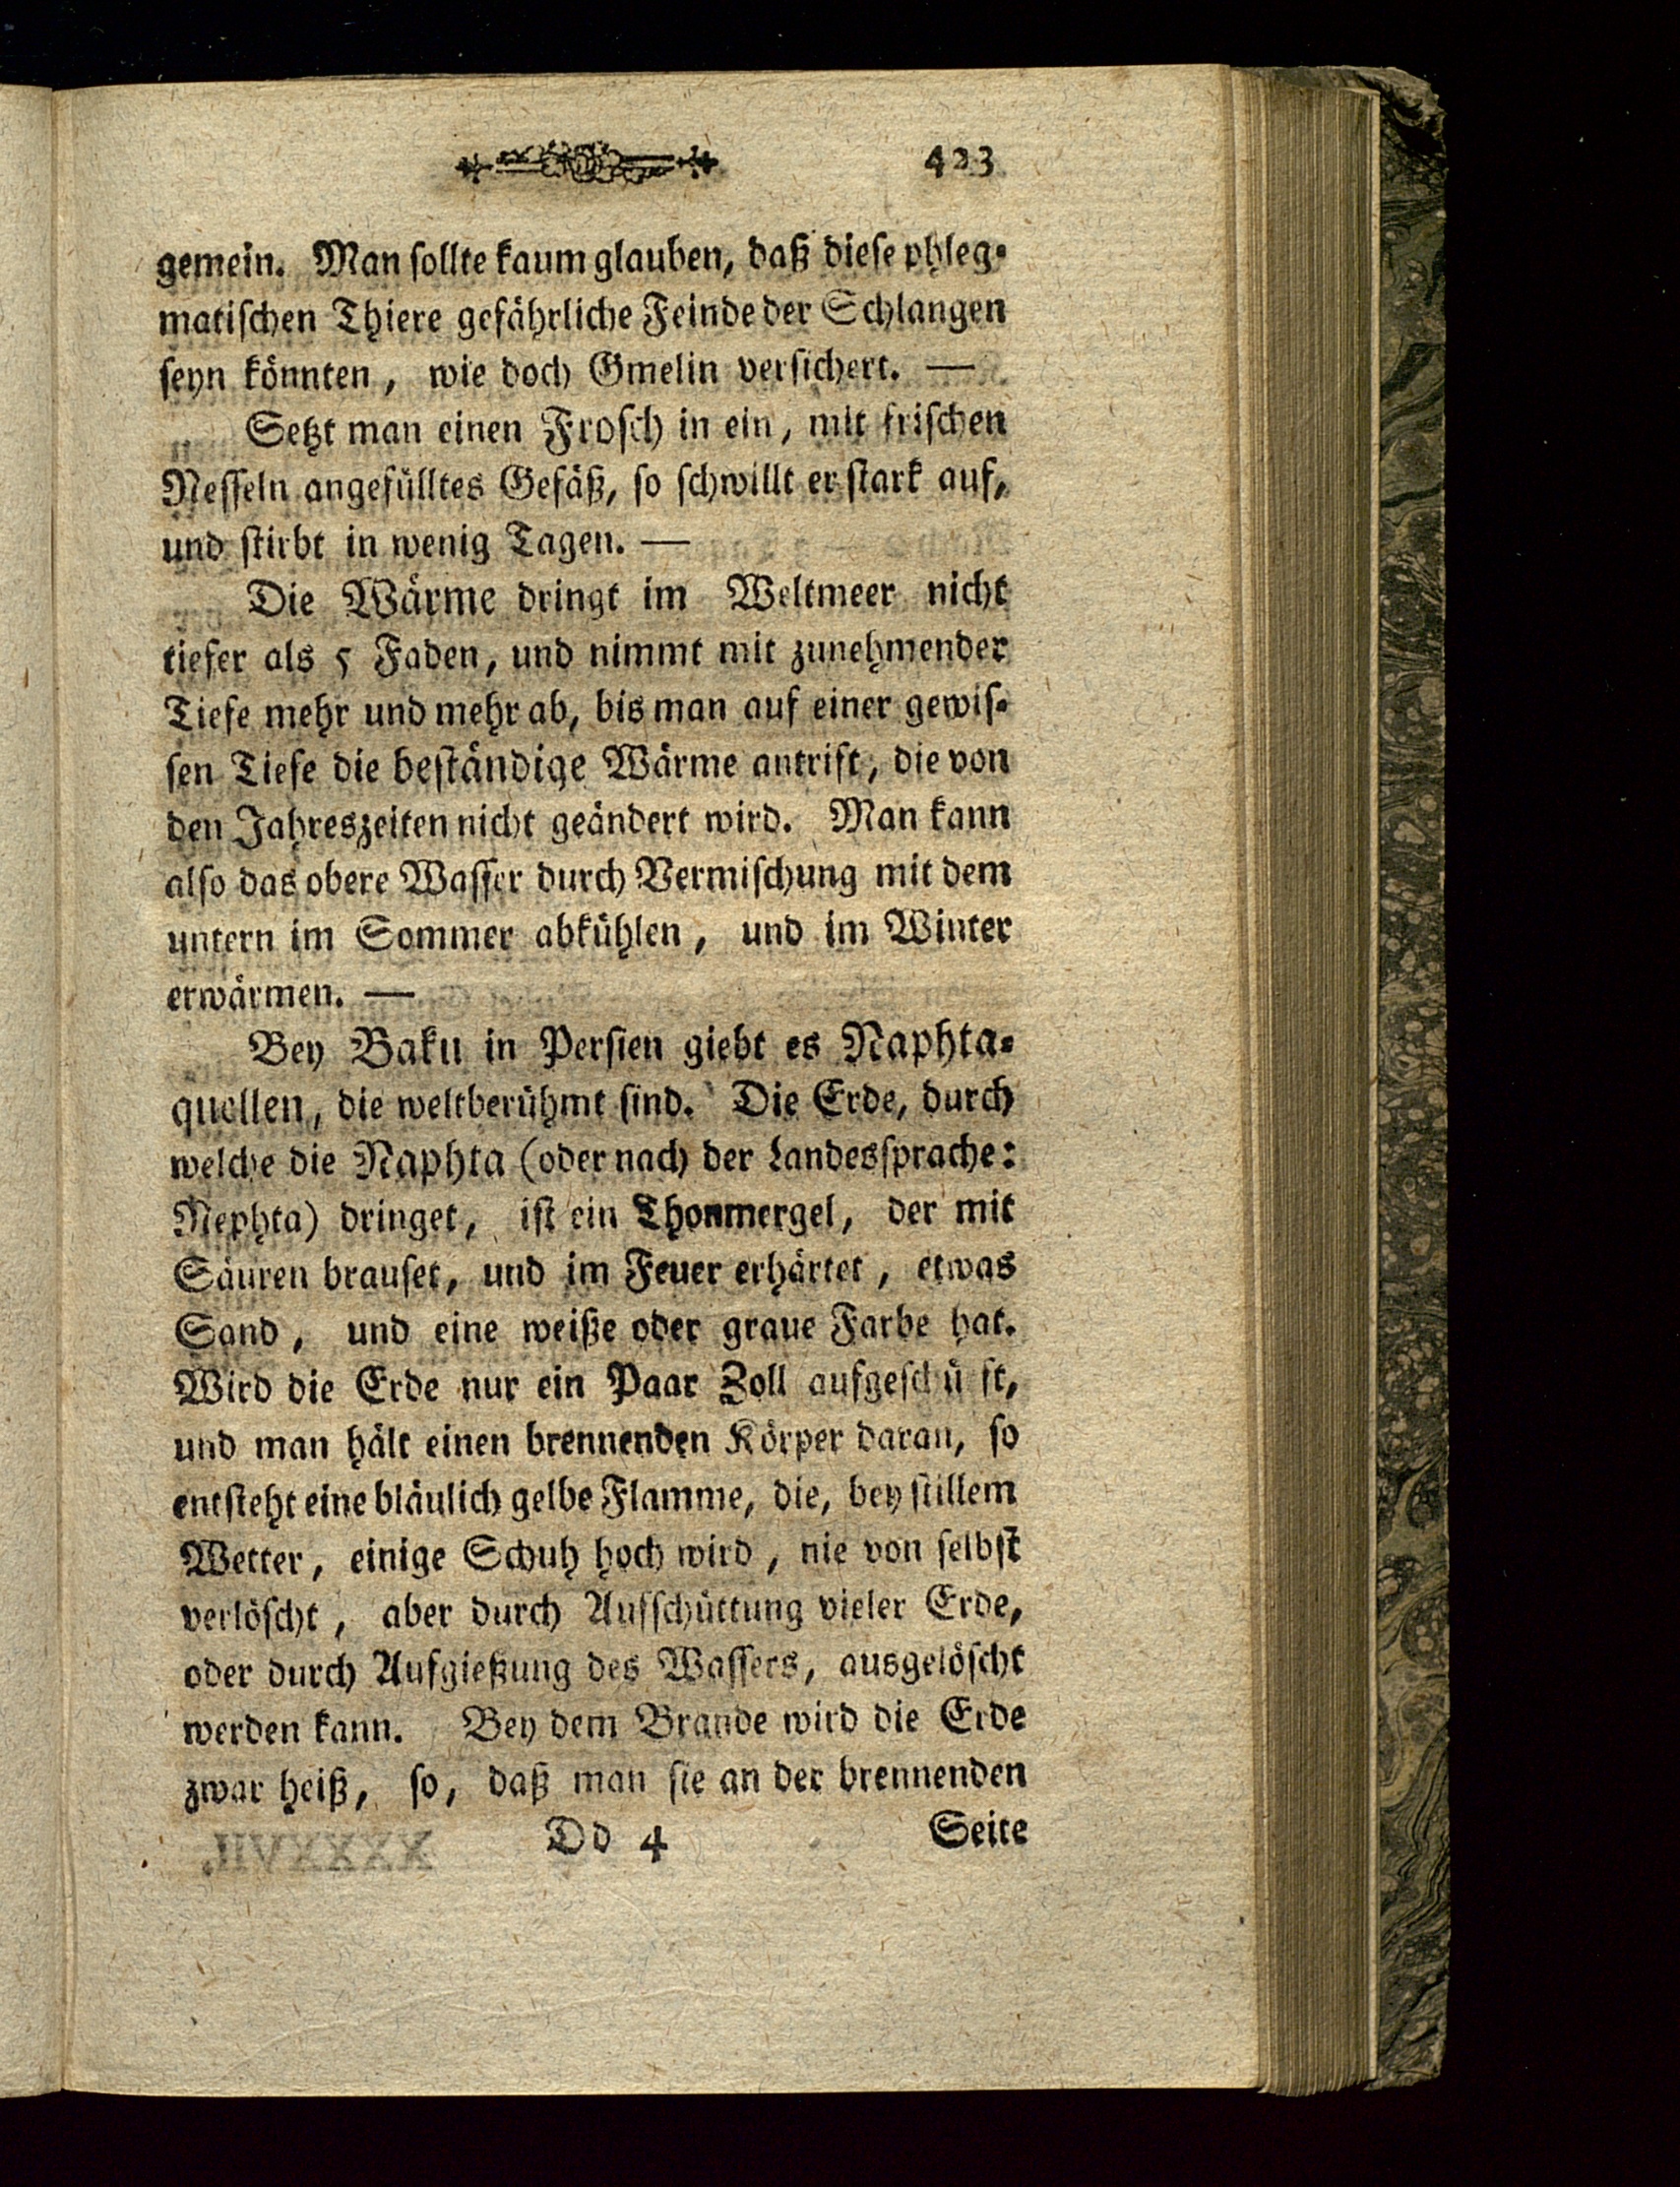 423
gemein. Man sollte kaum glauben, daß diese phleg-
matischen Thiere gefährliche Feinde der Schlangen
seyn könnten, wie doch Gmelin versichert. —
Setzt man einen Frosch in ein, mit frischen
Nesseln angefülltes Gefäß, so schwillt er stark auf,
und stirbt in wenig Tagen. —
Die Wärme dringt im Weltmeer nicht
tiefer als 5 Faden, und nimmt mit zunehmender
Tiefe mehr und mehr ab, bis man auf einer gewis-
sen Tiefe die beständige Wärme antrift, die von
den Jahreszeiten nicht geändert wird. Man kann
also das obere Wasser durch Vermischung mit dem
untern im Sommer abkühlen, und im Winter
erwärmen. —
Bey Baku in Persien giebt es Naphta-
quellen, die weltberühmt sind. Die Erde, durch
welche die Naphta (oder nach der Landessprache:
Nephta) dringet, ist ein Thonmergel, der mit
Säuren brauset, und im Feuer erhärtet, etwas
Sand, und eine weiße oder graue Farbe hat.
Wird die Erde nur ein Paar Zoll
und man hält einen brennenden Körper daran, so
entsteht eine bläulich gelbe Flamme, die, bey stillem
Wetter, einige Schuh hoch wird, nie von selbst
verlöscht, aber durch Aufschüttung vieler Erde,
oder durch Aufgießung des Wassers, ausgelöscht
werden kann. Bey dem Brande wird die Erde
zwar heiß, so, daß man sie an der brennenden
Dd 4 Seite